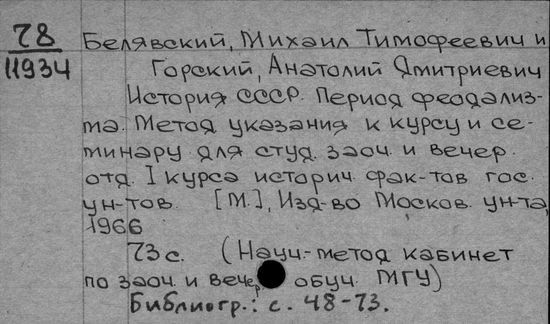 78
11934
Белявский, Михаил Тимофеевич и
Горский, Анатолий Дмитриевич
История СССР. Период феодализ-
ма. Метод указания к курсу и се-
минару для студ. заоч. и вечер.
отд. I курса историч. фак-тов гос.
ун-тов. [М.], Изд-во Москов. ун-та
1966
73 с. (Науч.-метод кабинет
по заоч. и вечер. обуч. МГУ)
Библиогр.: с. 48-73.